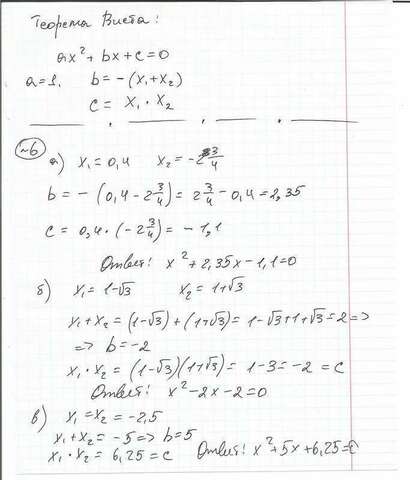 Теорема Виета:
ax² + bx + c = 0
a = 1. b = -(x₁+x₂)
c = x₁ · x₂
№6
а) x₁ = 0,4 x₂ = -2 3/4
b = - (0,4 - 2 3/4) = 2 3/4 - 0,4 = 2,35
c = 0,4 · (-2 3/4) = -1,1
Ответ: x² + 2,35x - 1,1 = 0
б) x₁ = 1-√3 x₂ = 1+√3
x₁ + x₂ = (1-√3) + (1+√3) = 1-√3+1+√3 = 2 =>
=> b = -2
x₁ · x₂ = (1-√3)(1+√3) = 1-3 = -2 = c
Ответ: x² - 2x - 2 = 0
в) x₁ = x₂ = -2,5
x₁ + x₂ = -5 => b = 5
x₁ · x₂ = 6,25 = c Ответ: x² + 5x + 6,25 = 0